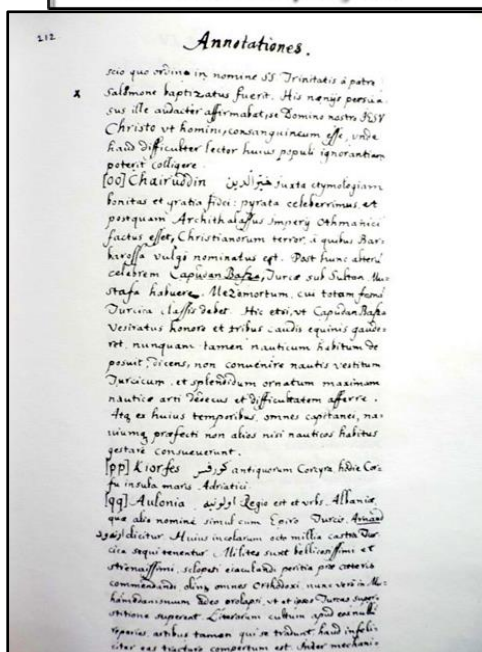 212
Annotationes.
scio quo ordine in nomine SS. Trinitatis á patre
x Salomone baptizatus fuerit. His nænijs persua=
sus ille audacter affirmabat, se Domino nostro IESV
Christo vt homini, consanguineum esse, vnde
haud difficulter lector huius populi ignorantiam
poterit colligere.
[oo] Chairuddin خيرالدين juxta etymologiam
bonitas et gratia fidei: pyrata celeberrimus, et
postquam Archithalassus imperij Othmanici
factus esset, Christianorum terror, á quibus Bar=
barossa vulgó nominatus est. Post hunc alterũ
celebrem Capudan Baſza, Turcæ sub Sultan Mu=
stafa habuere, Mezomortum, cui totam famã
Turcica classis debet. Hic etsi, vt Capudan Baſza
Vesiratus honore et tribus caudis equinis gaude=
ret, nunquam tamen nauticum habitum de
posuit, dicens, non convenire nautis vestitum
Turcicum, et splendidum ornatum maximum
nauticæ arti dedecus et difficultatem afferre.
Atq ex huius temporibus, omnes capitanei, na=
viumq præfecti non alios nisi nauticos habitus
gestare consueverunt.
[pp] Kiorfes كورفس antiquorum Corcyra hodie Cor=
fu insula maris Adriatici.
[qq] Aulonia اولونيه Regio est et vrbs Albaniæ,
quæ alio nomine simul cum Epiro Turcis Arnaud
ارناود dicitur. Huius incolarum octo millia castra Tur=
cica sequi tenentur. Milites sunt bellicosissimi et
strenuissimi, sclopeti eiaculandi peritia præ cæteris
commendandi, olim omnes Orthodoxi, nunc veró in Mu=
hammedanismum adeo prolapsi, vt et ipsos Turcas super=
stitione superent. Literarum cultum apud eos nullũ
reperies, artibus tamen qui se tradunt, haud infelici=
citer eas tractare compertum est. Inder mechani=